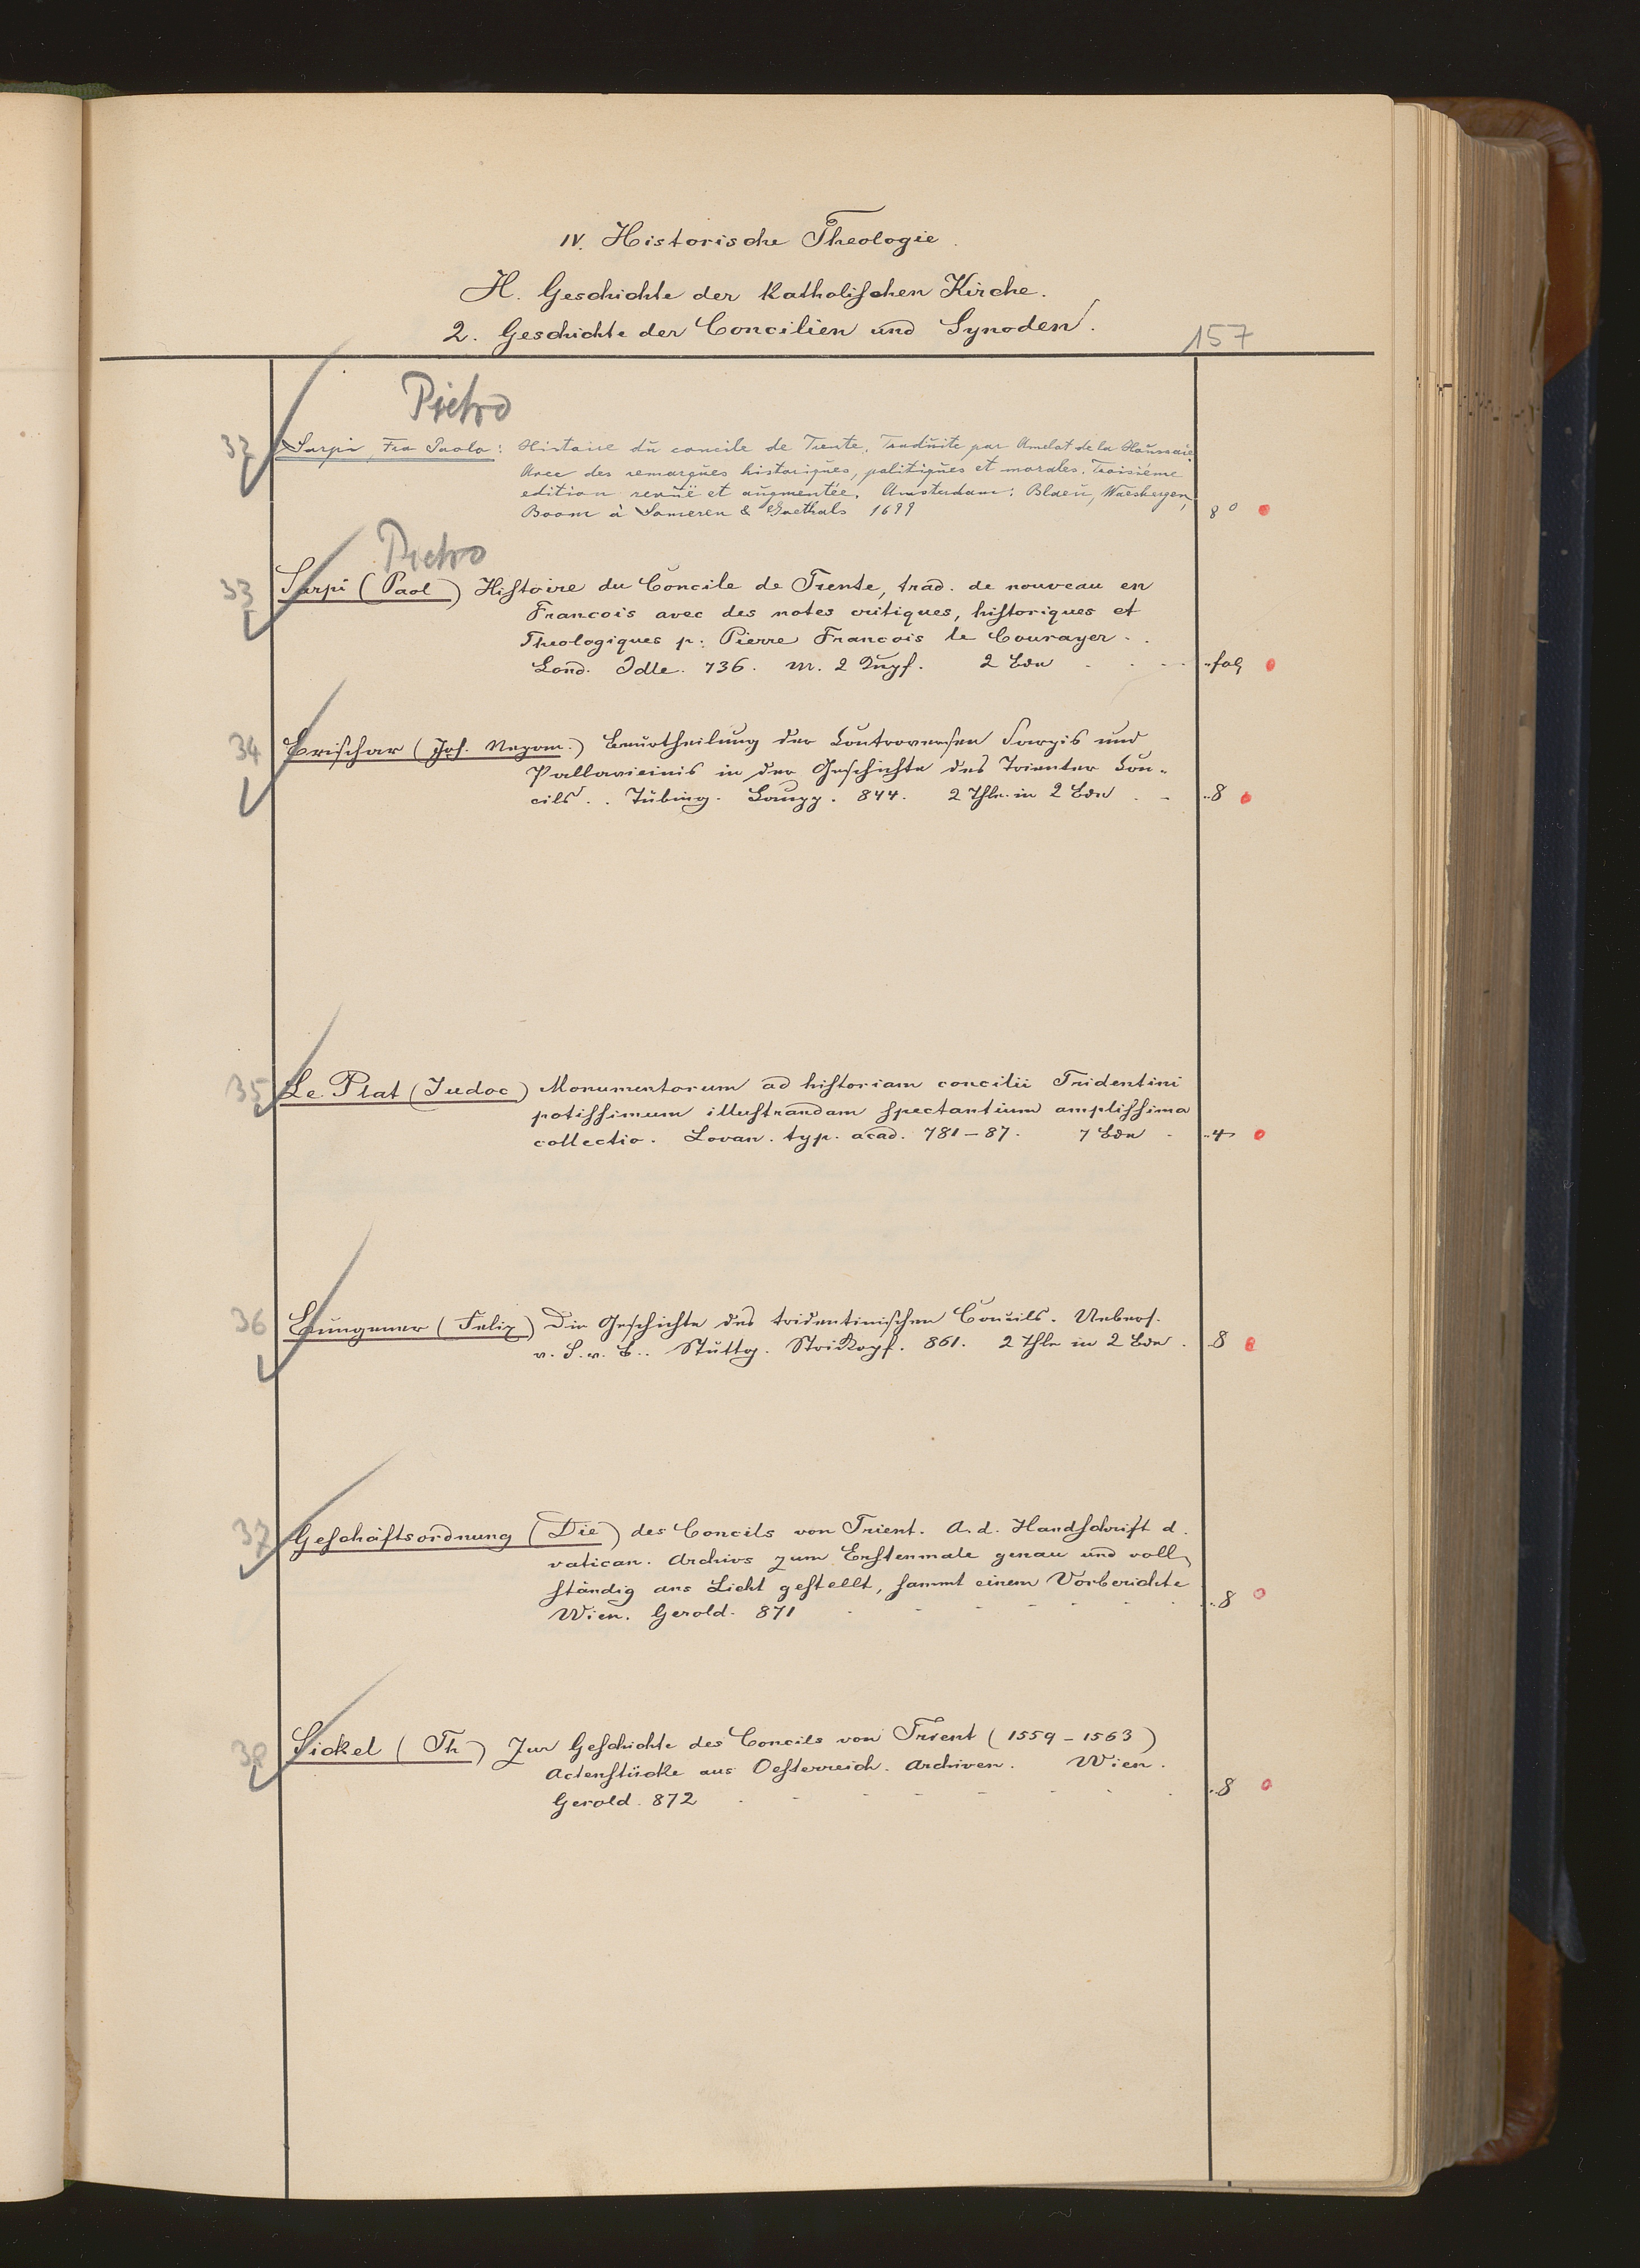 IV. Historische Theologie.
H. Geschichte der Katholischen Kirche.
2. Geschichte der Concilien und Synoden.
157
Pietro
32 Sarpi, Fra Paolo: Histoire du concile de Trente. Traduite par Amelot de la Houssaie
Avec des remarques historiques, politiques et morales. Troisième
edition revuë et augmentée. Amsterdam: Blaeu, Waesbergen,
Boom à Someren & Goethals 1699 8°
Pietro
33 Sarpi (Paol) Histoire du Concile de Trente, trad. de nouveau en
Francois avec des notes critiques, historiques et
Theologiques p: Pierre Francois le Courayer.
Lond. Idle. 736. m. 2 Kupf. 2 Bde fol
34 Brischar (Joh. Nepom.) Beurtheilung der Controversen Sarpis und
Pallavicinis in der Geschichte des Trienter Con-
cils. Tübing. Laupp. 844. 2 Thle in 2 Bde 8
35 Le Plat (Judoc) Monumentorum ad historiam concilii Tridentini
potissimum illustrandam spectantium amplissima
collectio. Lovan. typ. acad. 781-87. 7 Bde 4
36 Bungener (Felix) Die Geschichte des tridentinischen Concils. Uebers.
v. S. v. B.. Stuttg. Steinkopf. 861. 2 Thle in 2 Bde. 8
37 Geschäftsordnung (Die) des Concils von Trient. A. d. Handschrift d.
vatican. Archivs zum Erstenmale genau und voll-
ständig ans Licht gestellt, sammt einem Vorberichte
Wien. Gerold. 871 8
38 Sickel (Th) Zur Geschichte des Concils von Trient (1559-1563)
Actenstücke aus Oesterreich. Archiven. Wien.
Gerold. 872 8